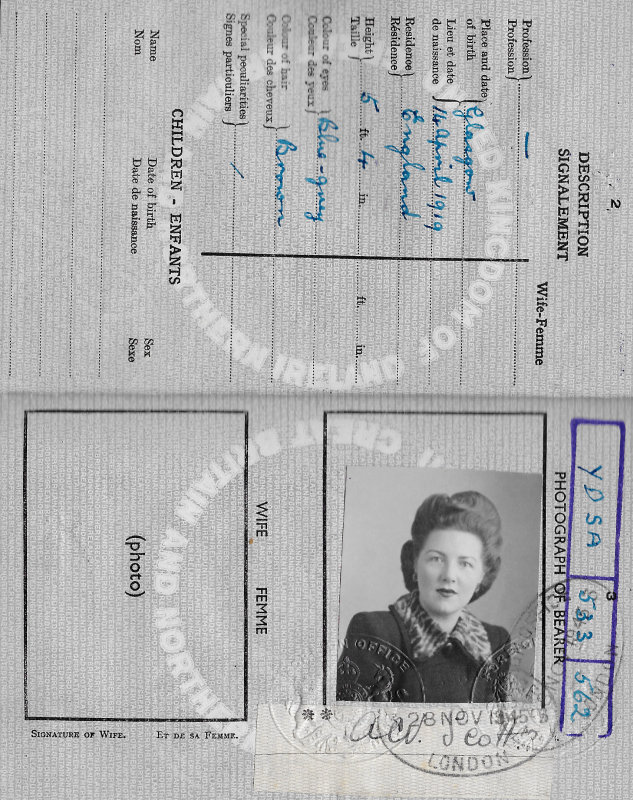 2
DESCRIPTION
SIGNALEMENT
Wife-Femme
Profession
Profession
—
Place and date
of birth
Glasgow
Lieu et date
de naissance
14 April 1919
Residence
Résidence
England
Height
Taille
5 ft. 4 in.
ft. in.
Colour of eyes
Couleur des yeux
Blue-grey
Colour of hair
Couleur des cheveux
Brown
Special peculiarities
Signes particuliers
/
CHILDREN - ENFANTS
Name Date of birth Sex
Nom Date de naissance Sexe
UNITED KINGDOM OF
GREAT BRITAIN
AND NORTHERN IRELAND
3
YDSA 533 562
PHOTOGRAPH OF BEARER
WIFE FEMME
(photo)
OFFICE
FOREIGN
28 NOV 1945
LONDON
Scott
SIGNATURE OF WIFE. ET DE SA FEMME.